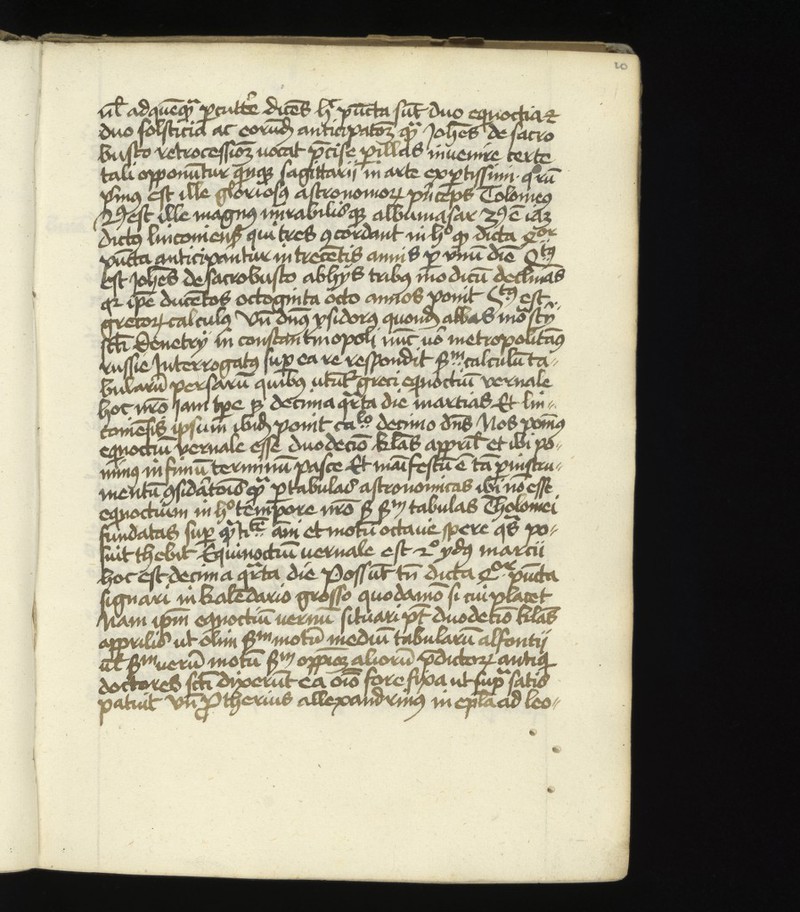 20
ul̄ adquēq̄ꝫ ꝑcuttē dicēs hͨ pūcta sūt duo equoctia ⁊
duo solsticia ac eorūdē anticipatoꝫ qͣ Johēs de sacro
busto retrocessioꝫ uocat p̄cise ꝑ illas inuenire certe
tali opponūtur quīqꝫ sagittarij in arte exꝑtissimi qͦrū
pͥmus est ille gloriosꝰ astronomoꝝ pͥnceps Tolomeꝰ
2ꝰ est ille magnꝰ mirabilisqꝫ albumasar 3ꝰ ē iaꝫ
dictꝰ linconiensꝭ qui tres ꝯcordant in hͦ qꝫ dicta
pūcta anticipantur in trecētis annis ꝑ vnū diē
est Johēs de sacrobusto ab hijs tribꝰ modicū declinās
qꝛ ip̄e ducētos octoginta octo annos ponit est
gretoꝝ calculꝰ Vn̄ dn̄s ysidorꝰ quondā abbas
scti Demetrij in constantinopoli nūc uͦ metropolitāꝰ
russie Interrogatꝰ suꝑ ea re respondit ẜm calculū ta-
bularū persarū quibꝰ utūtͬ greci equoctiū vernale
hoc nr̄o iam tꝑe ꝫ decima qͣrta die marcias Et lin-
coniēsis ipsum ibidē ponit decimo dn̄s Nos
equoctiū vernale esse duodecīo klās april̄ et ibi po-
nimꝰ infimū terminū pasce Et manifestū ē tā ꝑ instru-
mentū ꝯsidātois qͣꝫ ꝑ tabulas astronomicas ibi nō esse
equoctium in hͦ tempore nr̄o ẜm tabulas Tholomei
fundatas suꝑ qͣntitatē āni et motū octaue spere qͣs po-
suit thebit Equinoctiū vernale est 2ͦ ydꝰ marcij
hoc est decima qͣrta die Possūt tn̄ dicta pūcta
signari in kalēdario grosso quodāmō si cui placet
Nam ip̄m equoctiū vernū situari pͭ duodecīo klās
apprilis ut olim ẜm motū mediū tabularū alfontij
ul̄ ẜm uerū motū ẜm oppioꝫ aliorū p̄dictoꝝ antiqͥ
doctores scti dixerūt ea oīo fore fixa ut supͣ satis
patuit Vn̄ Protherius allexandrinꝰ in epl̄a ad leo-